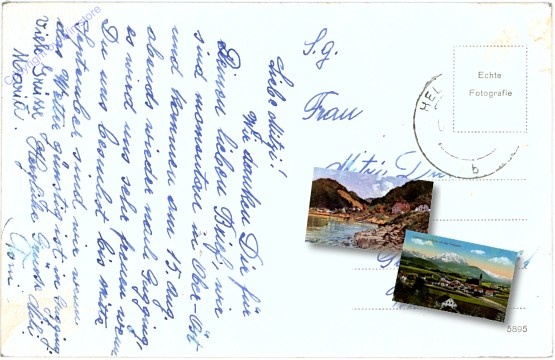 Liebe Mitzi!
Wir danken Dir für
Deinen lieben Brief, wir
sind momentan in Ober-Öst.
und kommen am 15. Aug.
abends wieder nach Gugging,
es wird uns sehr freuen wenn
Du uns besuchst bis mitte
September sind wir wenn
das Wetter günstig ist in Gugging.
Viele Grüsse Herzliche Grüsse
Maria. Toni
S.g.
Frau
Mitzi
Echte
Fotografie
HEL
b
5895